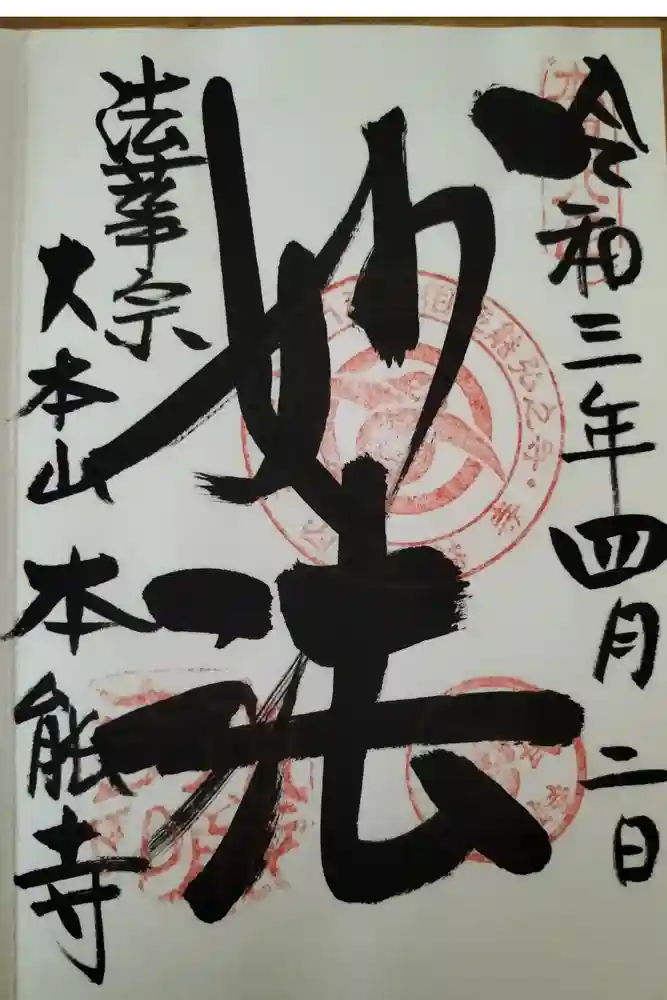 令和三年四月二日
妙法
法華宗
大本山 本能寺